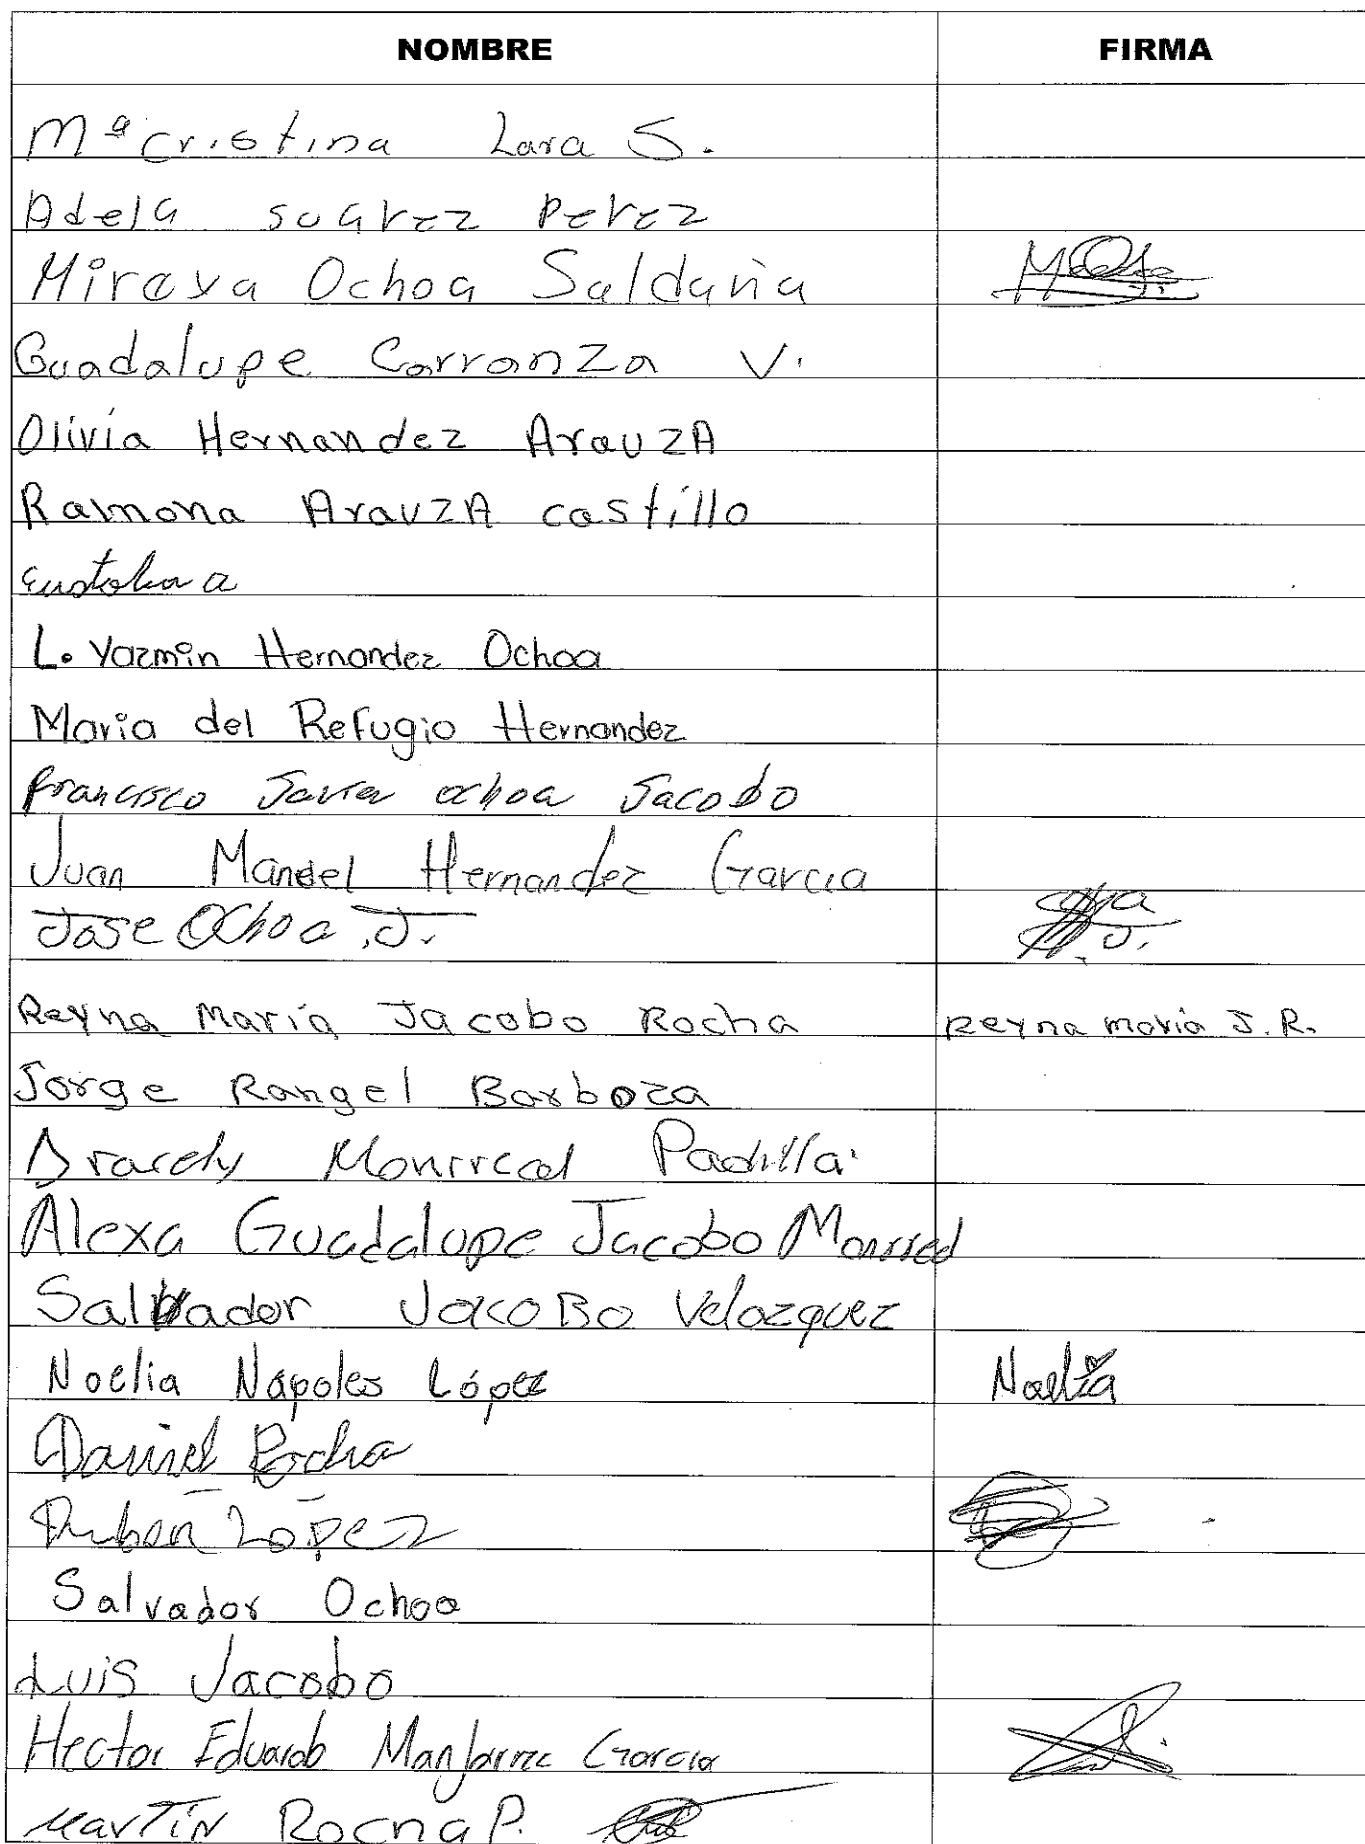 NOMBRE FIRMA
Mª Cristina Lara S.
Adela suarez Perez
Mireya Ochoa Saldaña
Guadalupe Carranza V.
Olivia Hernandez ArauzA
Ramona ArauzA castillo
Eustolia a
L. Yazmin Hernandez Ochoa
Maria del Refugio Hernandez
francisco Javier ochoa Jacobo
Juan Manuel Hernandez Garcia
Jose Ochoa .J.
Reyna María Jacobo Rocha Reyna maria J.R.
Jorge Rangel Barboza
Aracely Monrreal Padilla
Alexa Guadalupe Jacobo Monrreal
Salvador JacoBo Velazquez
Noelia Nápoles López Noelia
Daniel Rocha
Ruben López
Salvador Ochoa
Luis Jacobo
Hector Eduardo Garcia
MarTiN Rocha P.